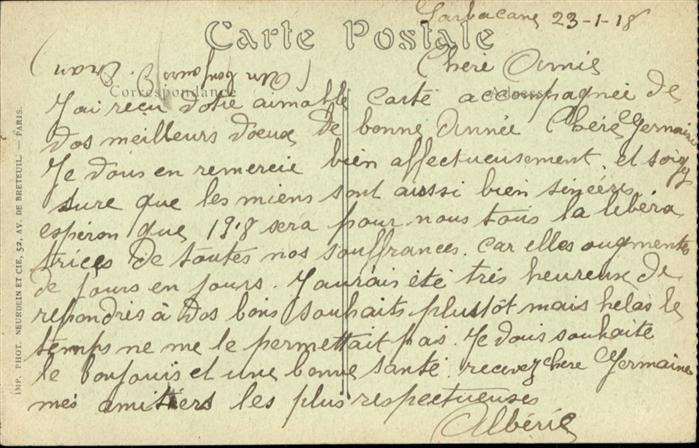 Larbacane 23-1-18
Carte Postale
Chère Amie
(Un bonjour
Correspondance
J'ai reçu votre aimable carte accompagnée de
vos meilleurs voeux de bonne Année Chère Germaine
Je vous en remercie bien affectueusement et soyez
sure que les miens sont aussi bien sincères
espéron que 1918 sera pour nous tous la libéra
trices de toutes nos souffrances. car elles augmente
de jours en jours. J'aurais été très heureux de
repondres à vos bons souhaits plustôt mais helas le
temps ne me le permettait pas. Je vous souhaite
le bonjouis et une bonne santé. recevez chère Germaines
mes amitiers les plus respectueuses
Albéric
IMP. PHOT. NEURDEIN ET CIE, 52, AV. DE BRETEUIL. — PARIS.